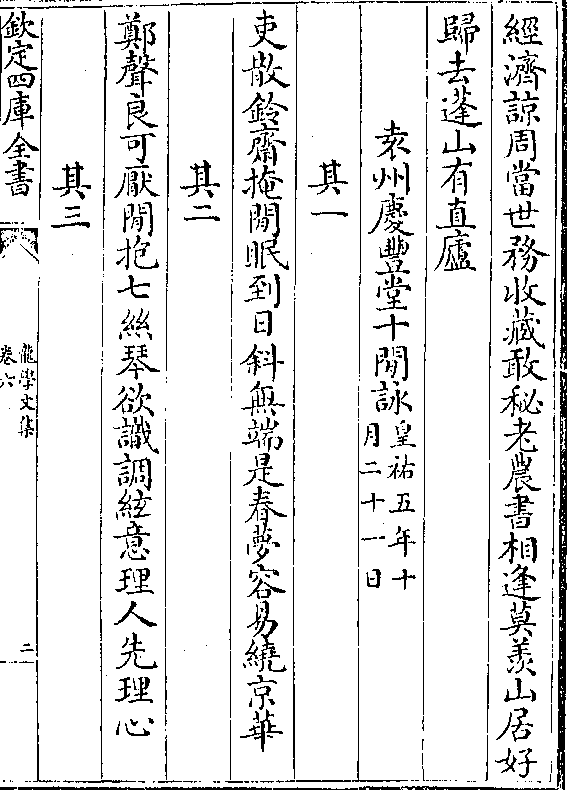 經濟諒周當世務收藏敢秘老農書相逢莫羨山居好
歸去蓬山有直廬
袁州慶豐堂十閒詠皇祐五年十
月二十一日
其一
吏散鈴齋掩閒眠到日斜無端是春夢容易繞京華
其二
鄭聲良可厭閒抱七絲琴欲識調絃意理人先理心
其三
欽定四庫全書
龍學文集
卷六
二